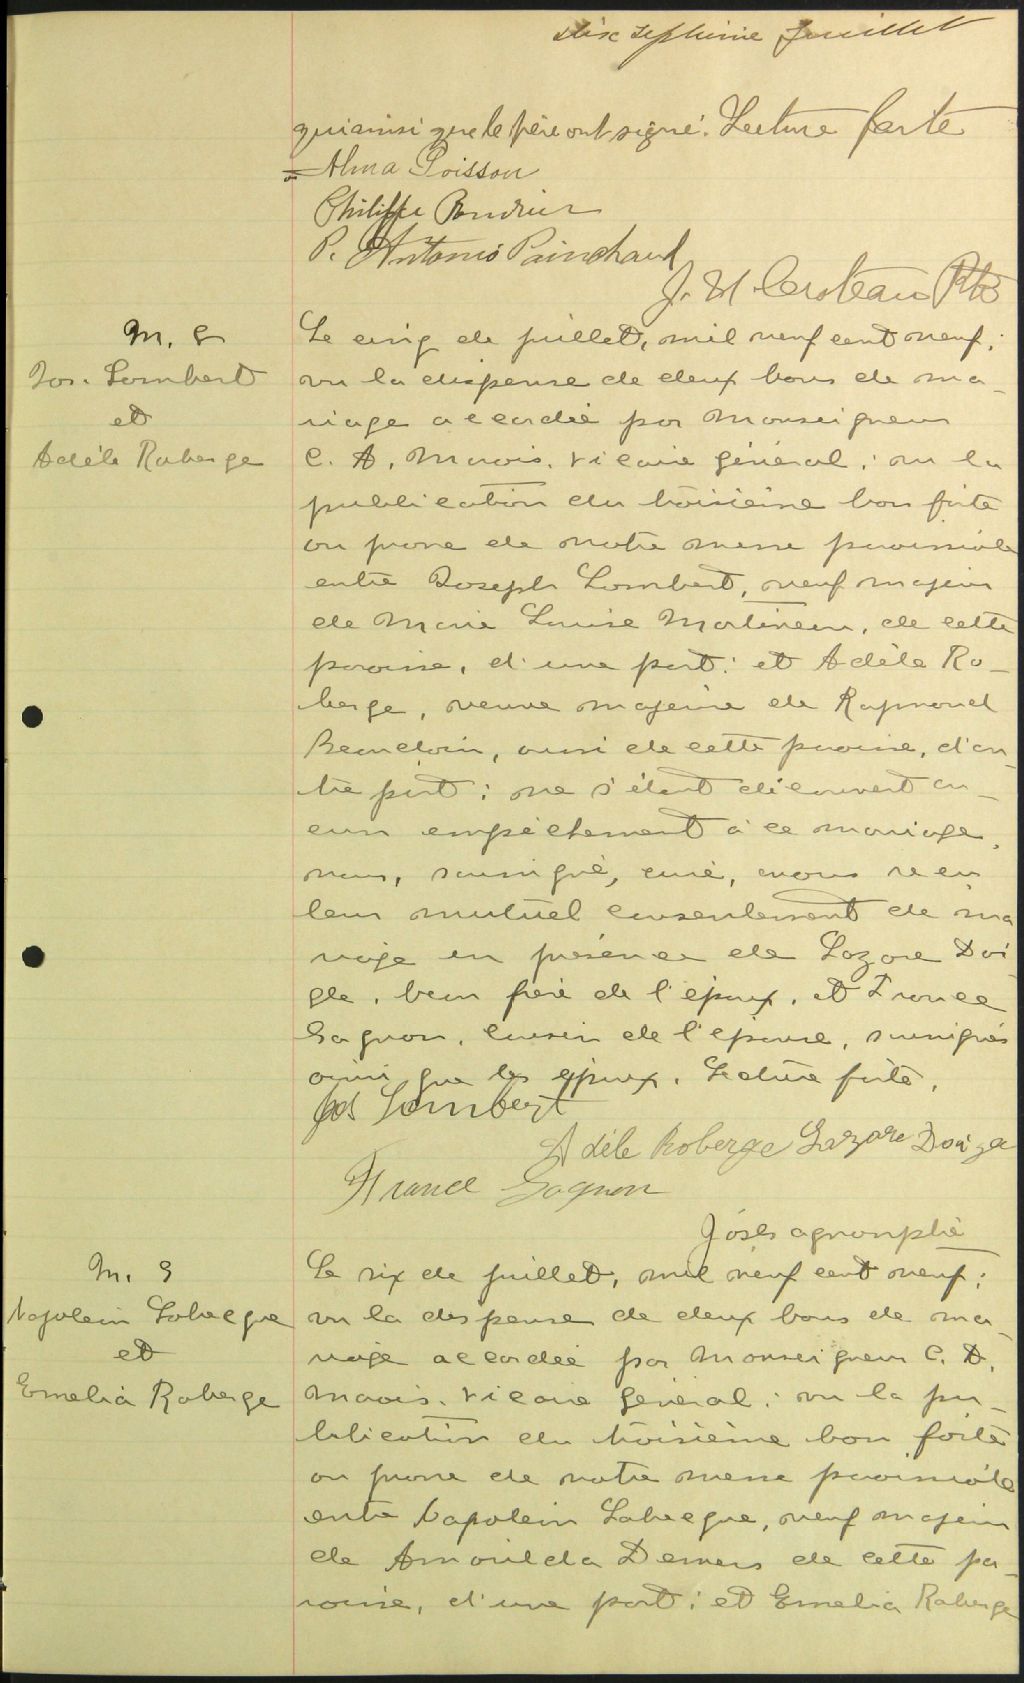 dix septième Juillet
qui ainsi que le père ont signé. Lecture faite
Alma Poisson
Philippe
P. Antonio Painchaud
J. H. Croteau Ptre
M. 8
Jos. Lambert
et
Adèle Roberge
Le cinq de juillet, mil neuf cent neuf;
vu la dispense de deux bans de ma-
riage accordée par Monseigneur
C. A. Marois, vicaire général; vu la
publication du troisième ban faite
au prone de notre messe paroissiale
entre Joseph Lambert, veuf majeur
de Marie Louise Martineau, de cette
paroisse, d'une part: et Adèle Ro-
berge, veuve majeure de Raymond
Beaudoin, aussi de cette paroisse, d'au-
tre part; ne s'étant découvert au-
cun empêchement à ce mariage,
nous, soussigné, curé, avons reçu
leur mutuel consentement de ma
riage en présence de Lazare Dai
gle, beau frère de l'époux, et France
Gagnon, cousin de l'épouse, soussignés
ainsi que les époux. Lecture faite.
Jos Lambert
Adèle Roberge Lazare
France Gagnon
M. 9
Napoleon Labecque
et
Emelia Roberge
Le six de juillet, mil neuf cent neuf;
vu la dispense de deux bans de ma-
riage accordée par Monseigneur C. A.
Marois, vicaire général; vu la pu-
blication du troisième ban faite
au prone de notre messe paroissiale
entre Napoleon Labecque, veuf majeur
de Demers de cette pa-
roisse, d'une part; et Emelia Roberge